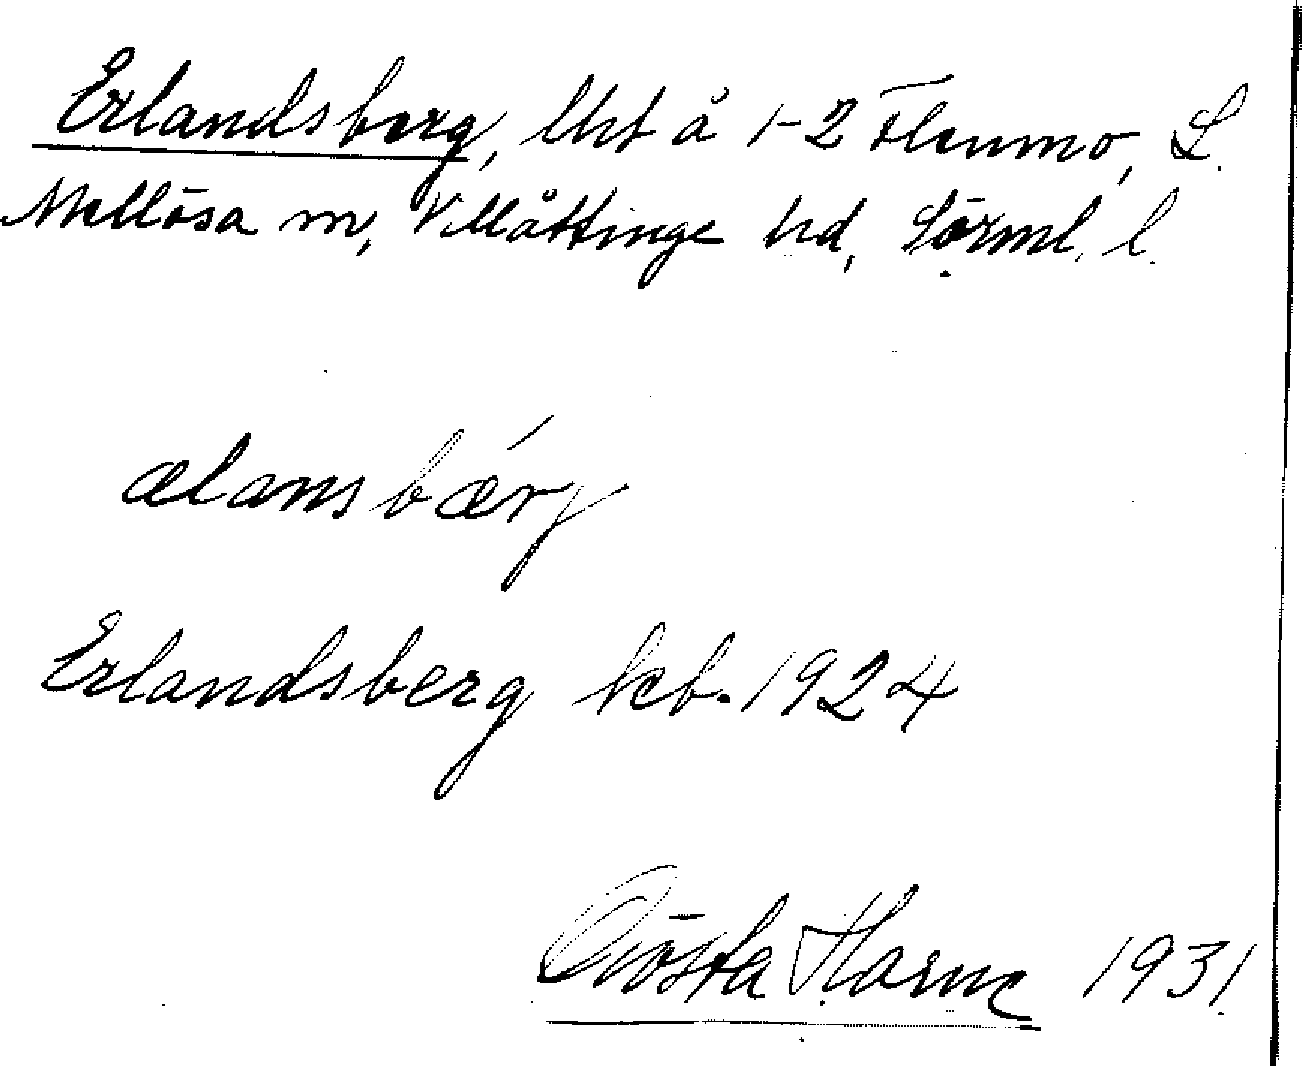 Erlandsberg, lht å 1-2 Flenmo, L.
Mellösa sn, Villåttinge hd, Sörml. l.
ælansbǽrj
Erlandsberg kb. 1924
Gösta Harne 1931